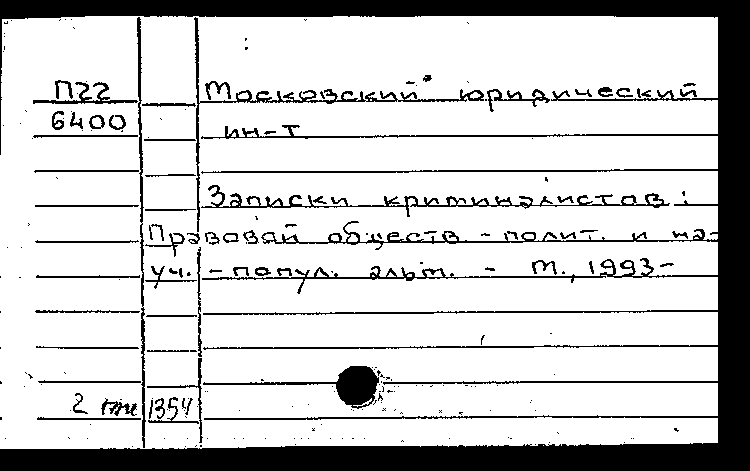 П22 Московский юридический
6400 ин-т
Записки криминалистов:
Правовой обществ.-полит. и на-
уч.-попул. альм. - М., 1993-
2 1354